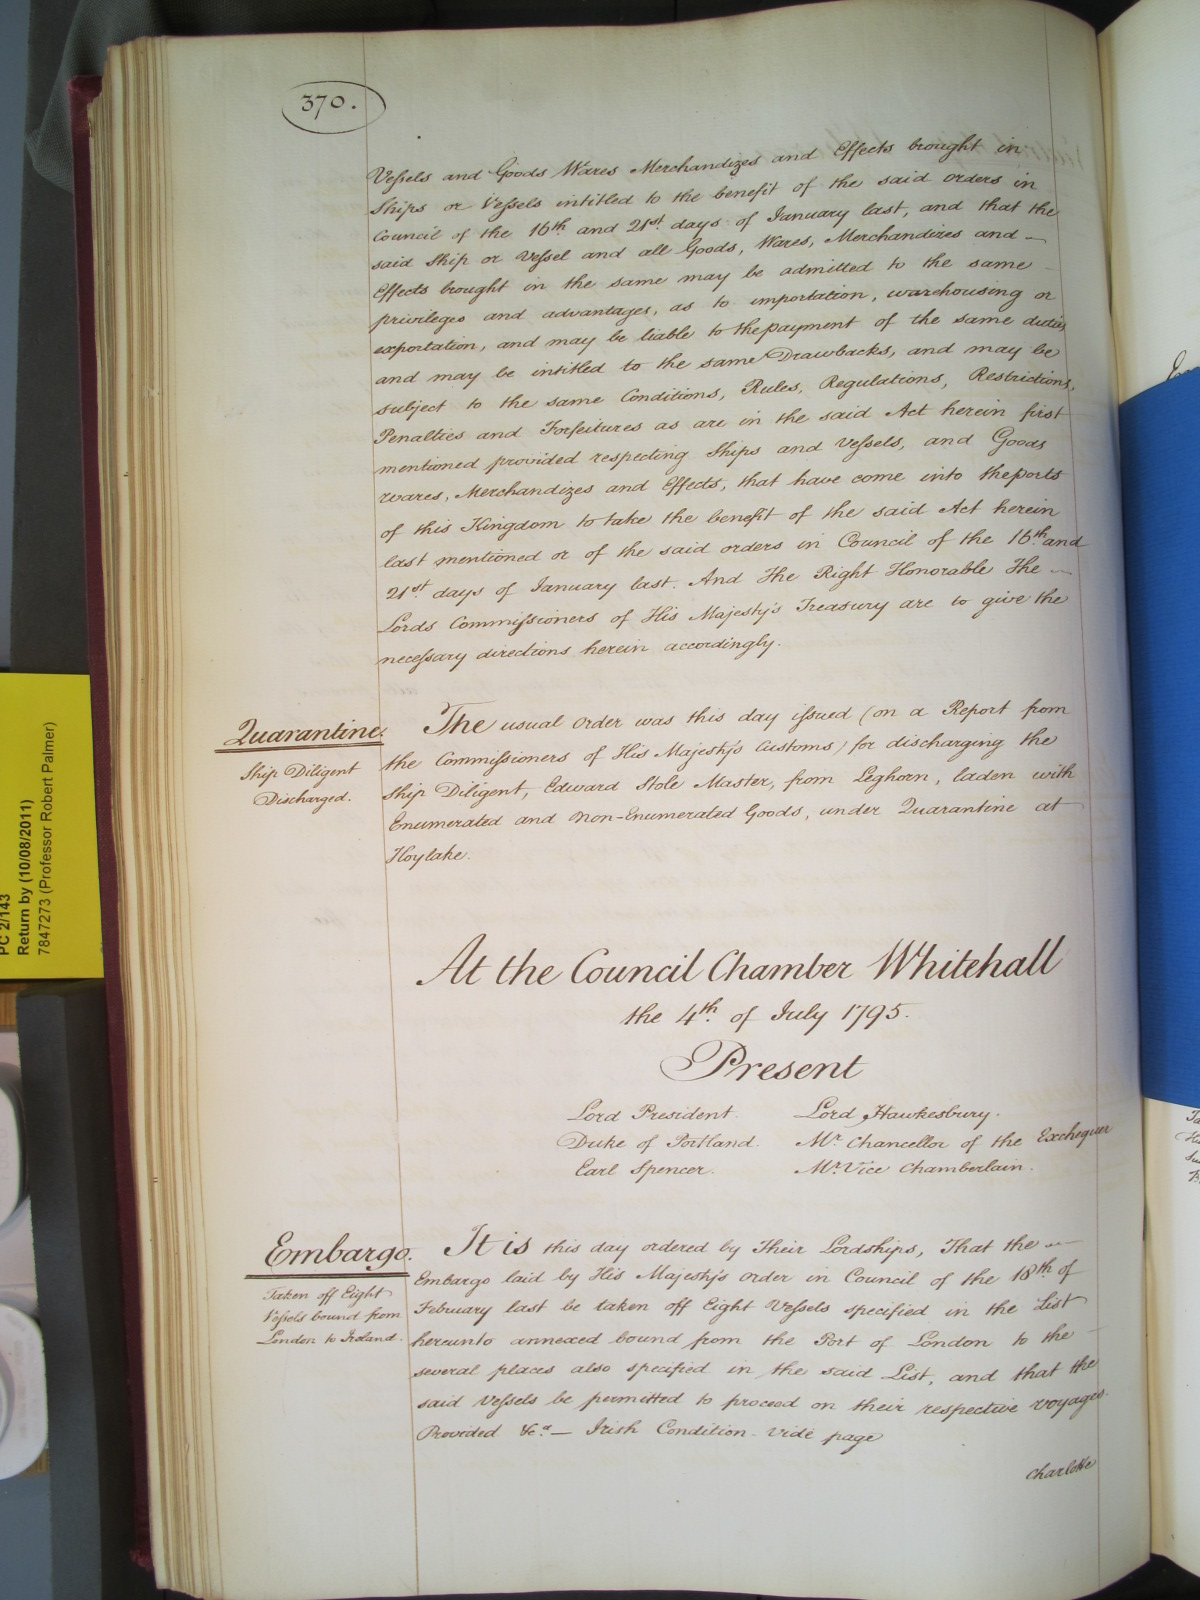 370.
Vessels and Goods Wares Merchandizes and Effects brought in
Ships or Vessels intitled to the benefit of the said orders in
Council of the 16th and 21st days of January last, and that the
said Ship or Vessel and all Goods, Wares, Merchandizes and
Effects brought in the same may be admitted to the same
privileges and advantages, as to importation, warehousing or
exportation, and may be liable to the payment of the same duties
and may be intitled to the same Drawbacks, and may be
subject to the same Conditions, Rules, Regulations, Restrictions,
Penalties and Forfeitures as are in the said Act herein first
mentioned provided respecting Ships and Vessels, and Goods
wares, Merchandizes and Effects, that have come into the ports
of this Kingdom to take the benefit of the said Act herein
last mentioned or of the said orders in Council of the 16th and
21st days of January last. And The Right Honorable The
Lords Commissioners of His Majesty's Treasury are to give the
necessary directions herein accordingly.
Quarantine.
Ship Diligent
Discharged.
The usual order was this day issued (on a Report from
the Commissioners of His Majesty's Customs) for discharging the
Ship Diligent, Edward Stole Master, from Leghorn, laden with
Enumerated and Non-Enumerated Goods, under Quarantine at
Hoylake.
At the Council Chamber Whitehall
the 4th of July 1795.
Present
Lord President. Lord Hawkesbury.
Duke of Portland. Mr. Chancellor of the Exchequer
Earl Spencer. Mr. Vice Chamberlain.
Embargo.
Taken off Eight
Vessels bound from
London to Ireland.
It is this day ordered by Their Lordships, That the
Embargo laid by His Majesty's Order in Council of the 18th of
February last be taken off Eight Vessels specified in the List
hereunto annexed bound from the Port of London to the
several places also specified in the said List, and that the
said Vessels be permitted to proceed on their respective voyages.
Provided &c.a — Irish Condition vide page
Charlotte
PC 2/143
Return by (10/08/2011)
7847273 (Professor Robert Palmer)